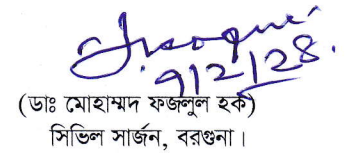 ৭/2/28.
(ডাঃ মোহাম্মদ ফজলুল হক)
সিভিল সার্জন, বরগুনা।